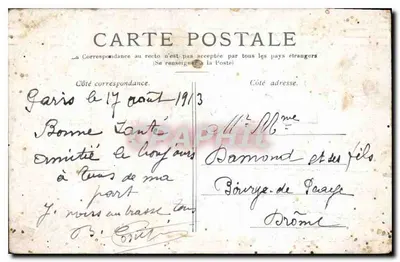 CARTE POSTALE
La Correspondance au recto n'est pas acceptée par tous les pays étrangers
(Se renseigner à la Poste)
Côté correspondance.
Côté adresse.
Paris le 17 août 1913
Bonne Santé
amitié le toujours
à tous de ma
part
Mr Mme
Damond et ses fils
Bourg-de-Péage
Drôme
tous
B.